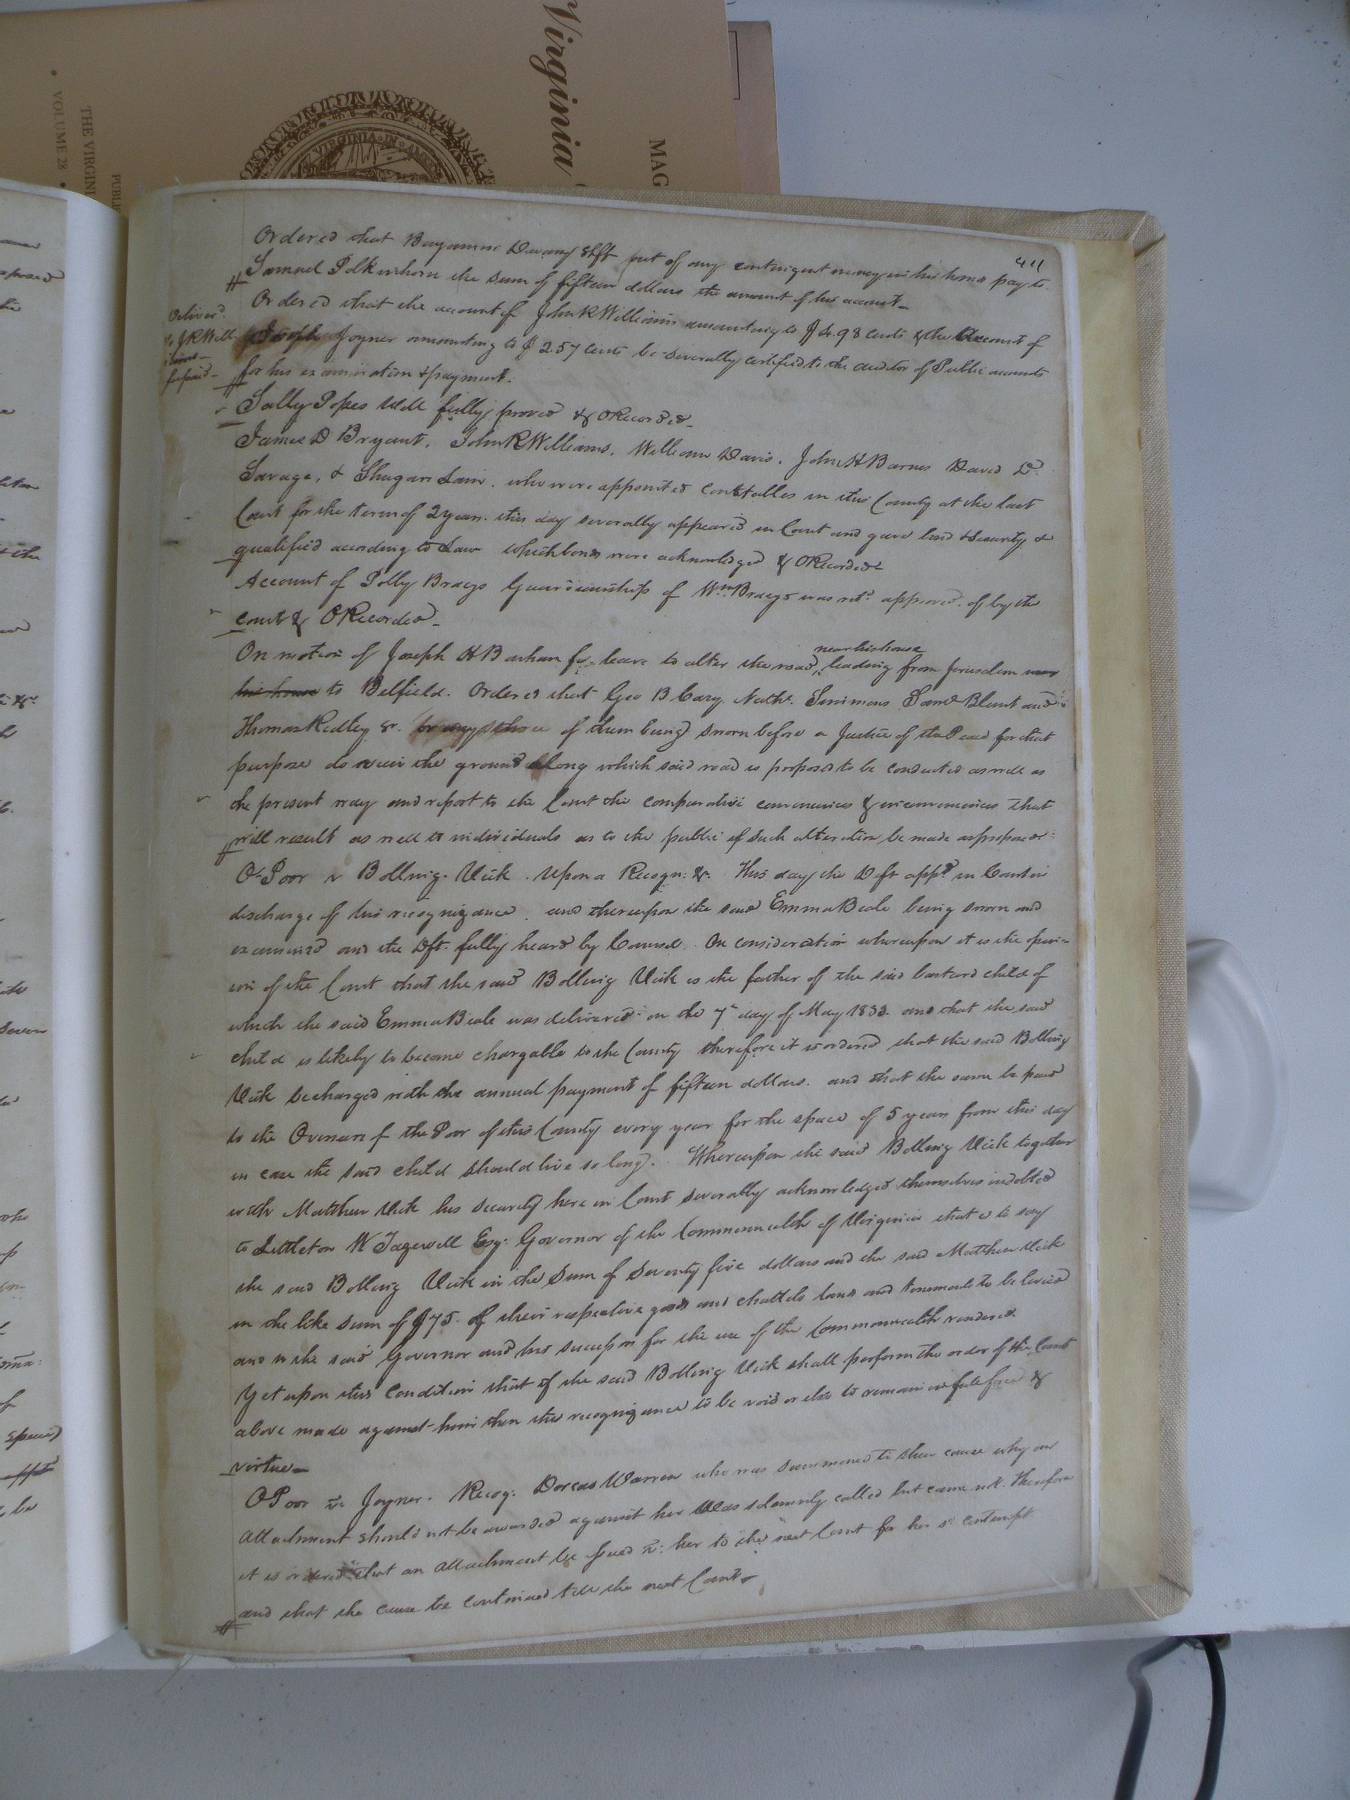 Virginia
MAG
VIRGINIA IN
THE VIRGINI
VOLUME 28
PUBL
411
Ordered that Benjamin Devany Shft out of any contingent money in his hands pay to
Samuel Polkinhorn the sum of fifteen dollars the amount of his account
Ordered that the account of John R Williams amounting to $4.98 cents & the Account of
Joseph Joyner amounting to $2.57 cents be severally certified to the auditor of Public accounts
for his examination & payment.
Deliverd
to J R Will
iams
Sally Popes Will fully proved & ORecorded
James D Bryant, John R Williams, William Davis, John H Barnes David D
Savage, & Shugars Lain, who were appointed constables in this County at the last
Court for the term of 2 years. this day severally appeared in Court and gave bond & security &
qualified according to Law which bonds were acknowledged & ORecorded
Account of Polly Braggs Guardianship of Wm. Bragg was retd. approved of by the
court & ORecorded
On motion of Joseph H Barham for leave to alter the road near his house leading from Jerusalem near
his house to Belfield. Ordered that Geo B Cary, Nath. Simmons, Saml Blunt and
Thomas Ridley & or any three of them being sworn before a Justice of the Peace for that
purpose do view the ground along which said road is proposed to be conducted as well as
the present way and report to the Court the comparative conveniences & inconveniences that
will result as well to individuals as to the public if such alteration be made as proposed
O Poor v Bolling Vick. Upon a Recogn: &. This day the Deft appd. in Court in
discharge of his recognizance, and thereupon the said Emma Beale being sworn and
examined and the Dft. fully heard by Counsel. On consideration whereupon it is the opin-
ion of the Court that the said Bolling Vick is the father of the said bastard child of
which the said Emma Beale was delivered on the 7th day of May 1833 and that the said
child is likely to become chargable to the County therefore it is ordered that the said Bolling
Vick be charged with the annual payment of fifteen dollars. and that the same be paid
to the Overseers of the Poor of this County every year for the space of 5 years from this day
in case the said child should live so long. Whereupon the said Bolling Vick together
with Matthew Vick his security here in Court severally acknowledged themselves indebted
to Littleton W Tazewell Esq. Governor of the Commonwealth of Virginia that is to say
the said Bolling Vick in the sum of Seventy five dollars and the said Matthew Vick
in the like sum of $75. of their respective goods and chattels lands and tenements to be levied
and to the said Governor and his successors for the use of the Commonwealth rendered.
Yet upon this Condition that if the said Bolling Vick shall perform the order of the Court
above made against him then this recognizance to be void or else to remain in full force &
virtue
O Poor vs Joyner. Recog: Dorcas Warren who was summoned to shew cause why an
attachment should not be awarded against her was solemnly called but came not. Therefore
it is ordered that an attachment be issued vs. her to the next Court for her sd contempt
and that the cause be continued till the next Court